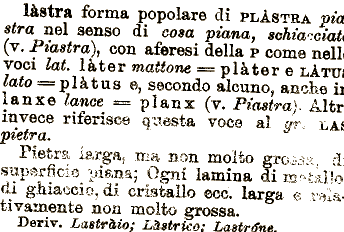 làstra forma popolare di PLÀSTRA pia
stra nel senso di cosa piana, schiacciata
(v. Piastra), con aferesi della P come nelle
voci lat. làter mattone = plàter e LÀTUS
lato = plàtus e, secondo alcuno, anche in
lanxe lance = planx (v. Piastra). Altri
invece riferisce questa voce al gr. LAS
pietra.
Pietra larga, ma non molto grossa, di
superficie piana; Ogni lamina di metallo
di ghiaccio, di cristallo ecc. larga e rela-
tivamente non molto grossa.
Deriv. Lastràio; Làstrico; Lastróne.